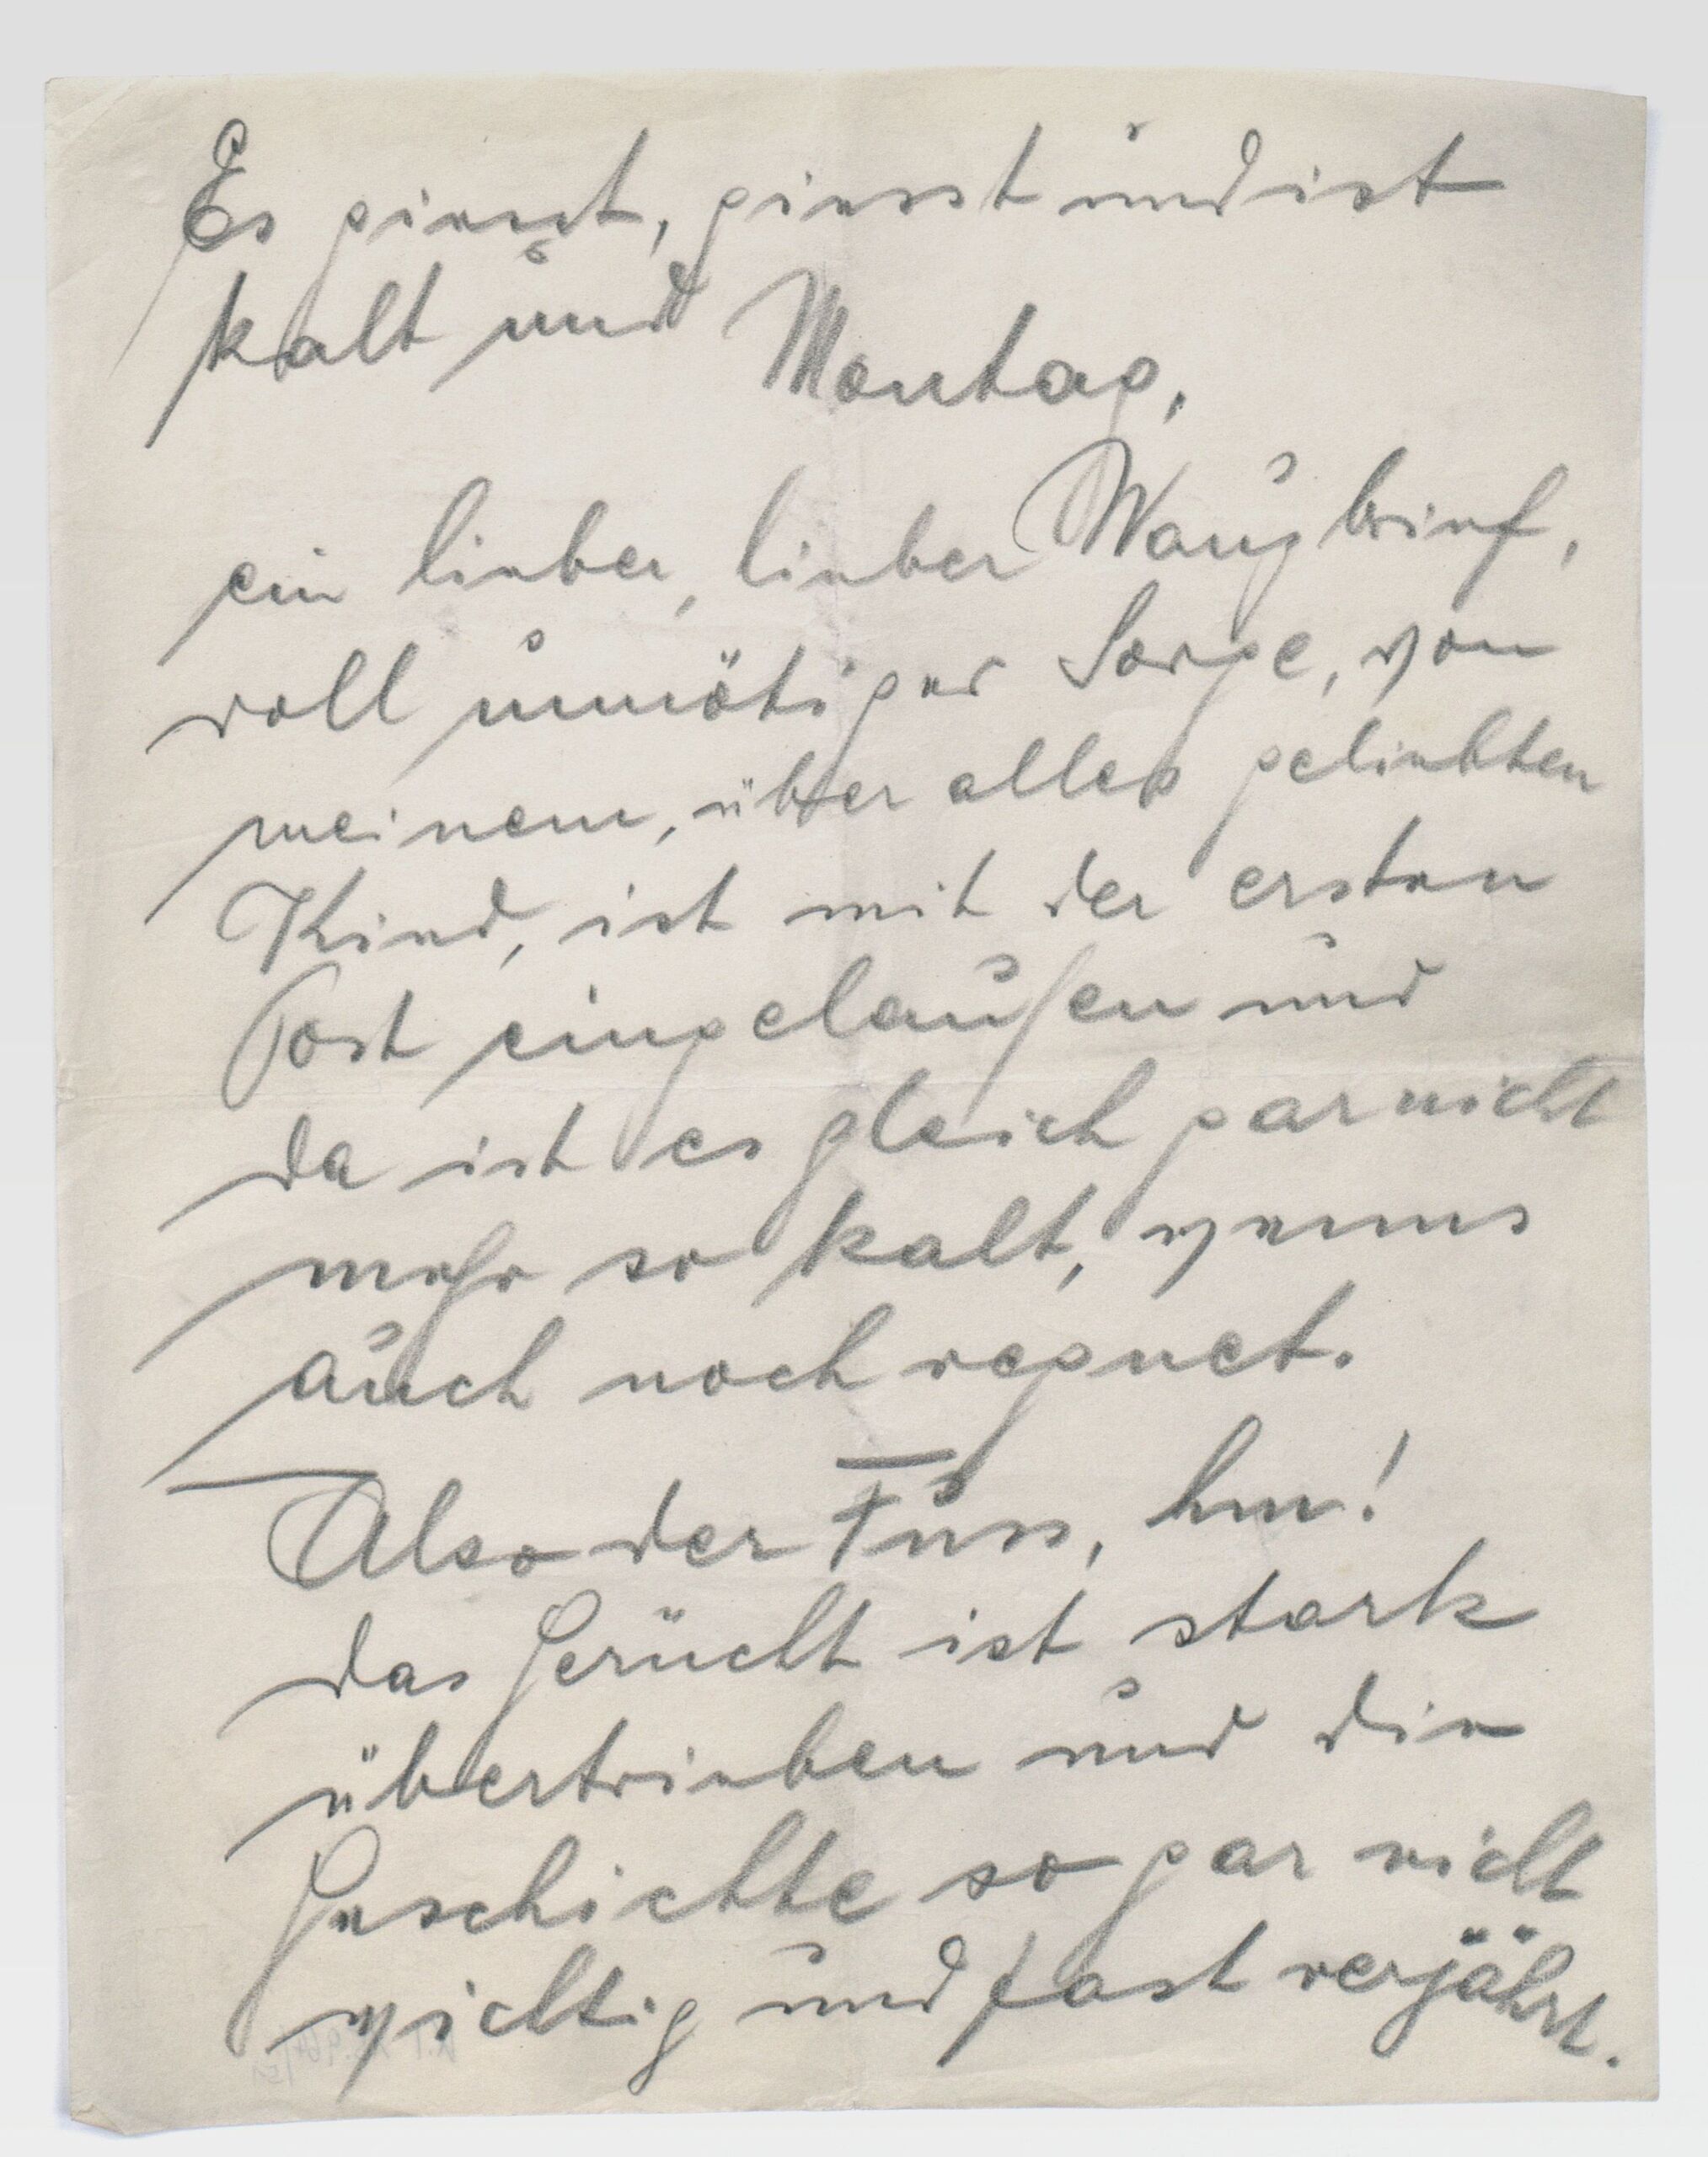 Es giesst, giesst und ist
kalt und Montag,
ein lieber, lieber brief,
voll unnötiger Sorge, von
meinem, über alles geliebten
Kind, ist mit der ersten
Post eingelaufen und
da ist es gleich gar nicht
mehr so kalt, wenns
auch noch regnet.
Also der Fuss, hm!
das Gerücht ist stark
übertrieben und die
Geschichte so gar nicht
wichtig und fast verjährt.